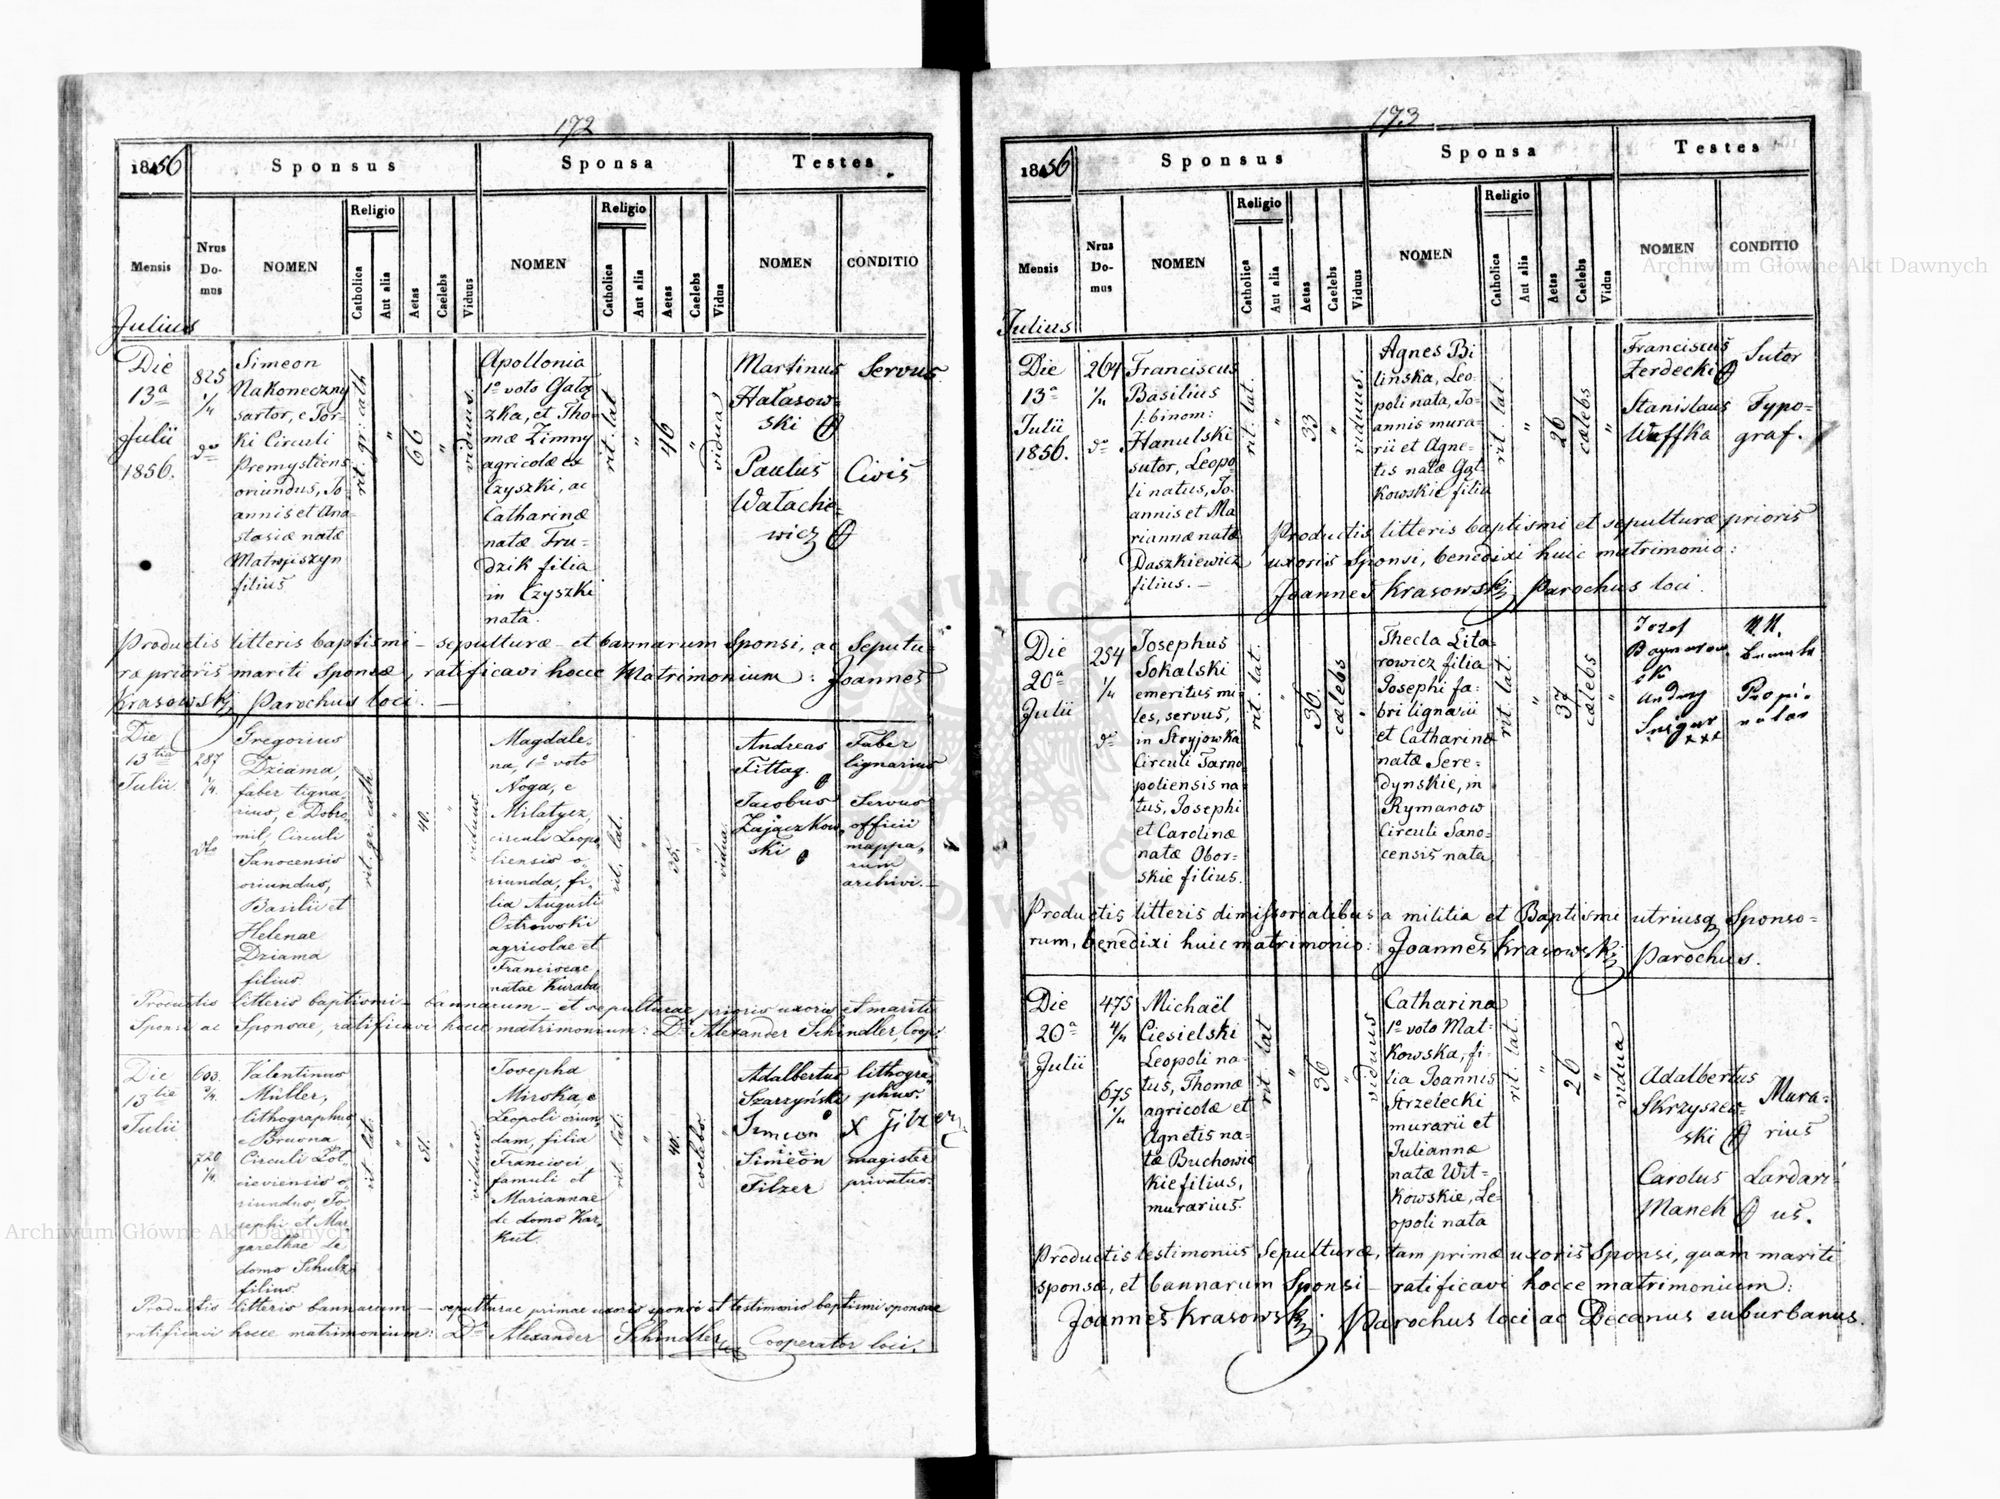 172
1856
Sponsus
Sponsa
Testes
Mensis
Nrus Do-mus
NOMEN
Religio
Catholica
Aut alia
Aetas
Caelebs
Viduus
NOMEN
Religio
Catholica
Aut alia
Aetas
Caelebs
Vidua
NOMEN
CONDITIO
Julius
Die
13a
Julii
1856.
825
1/4
Simeon
Nakoneczny
sartor, e Tor-
ki Circuli
Premysliens
oriundus, Jo-
annis et Ana-
stasiæ natæ
Matwiszyn
filius
rit. gr: cath
"
66
"
viduus.
Apollonia
1o voto Gałąz-
zka, et Tho-
mæ Zimny
agricolæ ex
Czyszki, ac
Catharinæ
natæ Fru-
dzik filia
in Czyszki
nata.
rit. lat
"
46
vidua
Martinus
Hałasow-
ski
Servus
Paulus
Wałache-
wicz
Civis
Productis litteris baptismi – sepulturæ – et bannarum Sponsi, ac Sepultu-
ra prioris mariti Sponsæ, ratificavi hocce Matrimonium: Joannes
Krasowski, Parochus loci. —
Die
13tia
Julii.
287
1/4
Gregorius
Dziama,
faber ligna
rius, e Dobro,
mil Circuli
Sanocensis
oriundus,
Basilii et
Helenae
Dziama
filius
rit. gr. cath.
"
40.
"
viduus.
Magdale,
na, 1o voto
Noga, e
Milatycz,
circuli Leopo,
liensis o,
riunda, fi,
lia Augusti
Ostrowski
agricolae et
Franciscae
natae Kuraba
rit. lat.
"
35.
vidua.
Andreas
Fittag.
Faber
lignarius
Jacobus
Zajączkow,
ski
Servus
officii
mappa,
rum
archivi.—
Productis litteris baptismi – bannarum – et sepulturae prioris uxoris et mariti
Sponsi ac Sponsae, ratificavi hocce matrimonium: Dr. Alexander Schindler, Coop.
Die
13tie
Julii
603.
2/4.
720
1/4.
Valentinus
Müller,
lithographus
e Bruona
Circuli Zot,
cieviensis o,
riundus, Jo,
sephi et Mar,
garethae de
domo Schulz
filius.
rit. lat.
"
51.
"
viduus.
Josepha
Mirska, e
Leopoli oriun,
dam, filia
Francisci
famuli et
Mariannae
de domo Kar,
kut.
rit. lat.
"
40.
coelebs.
"
Adalbertus
Szarzynski
lithogra,
phus.
Simeon
X Filzer
Simeon
Filzer
magister
privatus.
Productis litteris bannarum – sepulturae primae uxoris sponsi et testimonio baptismi sponsae
ratificavi hocce matrimonium: Dr Alexander Schindler Cooperator loci.
173
1856
Sponsus
Sponsa
Testes
Mensis
Nrus Do-mus
NOMEN
Religio
Catholica
Aut alia
Aetas
Caelebs
Viduus
NOMEN
Religio
Catholica
Aut alia
Aetas
Caelebs
Vidua
NOMEN
CONDITIO
Julius
Die
13a
Julii
1856.
264
1/4
Franciscus
Basilius
/:binom:
Hanulski
sutor, Leopo
li natus, Jo-
annis et Ma
riannæ natæ
Daszkiewicz
filius. —
rit. lat.
"
33
"
viduus.
Agnes Bi
linska, Leo
poli nata, Jo-
annis mura-
rii et Agne-
tis natæ Gat
kowskie filia
rit. lat.
"
26
cælebs
"
Franciscus
Zerdecki
Sutor
Stanislaus
Weffka
Typo-
graf.
Productis litteris baptismi et sepulturæ prioris
uxoris Sponsi, benedixi huic matrimonio:
Joannes Krasowski, Parochus loci.
Die
20a
Julii
254
1/4
Josephus
Sokalski
emeritus mi-
les, servus,
in Stryjowka
Circuli Tarno
poliensis na
tus, Josephi
et Carolinæ
natæ Obor-
skie filius.
rit. lat.
"
36.
cælebs
Thecla Lita-
rowicz filia
Josephi fa-
bri lignarii
et Catharinæ
natæ Sere-
dynskie, in
Rymanow
Circuli Sano-
censis nata
rit. lat.
"
37
cælebs
"
Jozef
N.N.
Andrzy
xxx
Propi-
nator
Productis litteris dimissorialibus a militia et Baptismi utriusq Sponso-
rum, benedixi huic matrimonio: Joannes Krasowski, Parochus.
Die
20a
Julii
475
4/4
675
1/4
Michaël
Ciesielski
Leopoli na-
tus, Thomæ
agricolæ et
Agnetis na-
tæ Buchowic
kie filius,
murarius.
rit. lat
"
36
"
viduus
Catharina
1o voto Mat-
kowska, fi-
lia Joannis
Strzelecki
murarii et
Juliannæ
natæ Wit-
kowskie, Le-
opoli nata
rit. lat.
"
26
vidua
Adalbertus
Skrzyszew-
ski
Mura-
rius
Carolus
Manek
Lardari-
us.
Productis testimoniis Sepulturæ, tam primæ uxoris Sponsi, quam mariti
sponsæ, et bannarum Sponsi – ratificavi hocce matrimonium:
Joannes Krasowski, Parochus loci ac Decanus suburbanus.
Archiwum Główne Akt Dawnych
Archiwum Główne Akt Dawnych